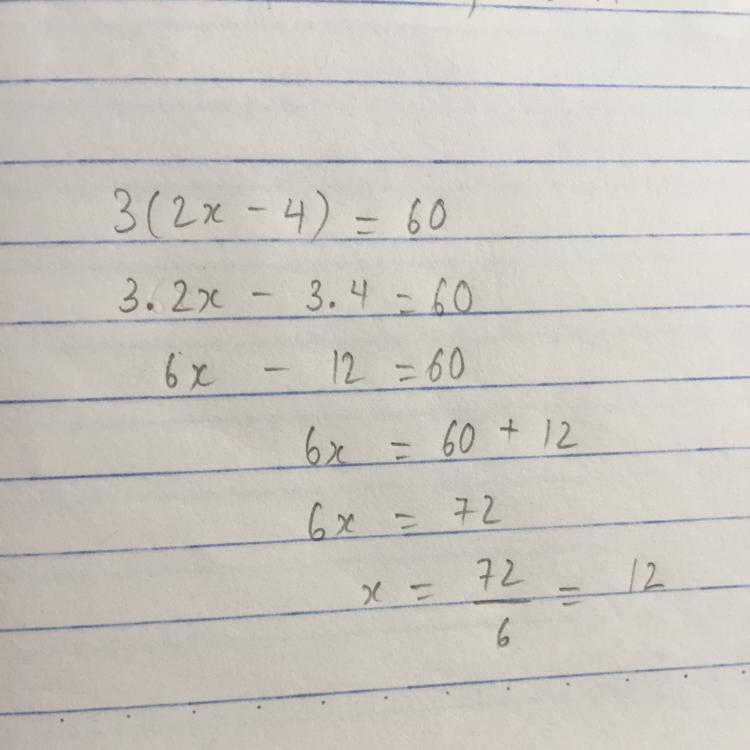 3(2x - 4) = 60
3.2x - 3.4 = 60
6x - 12 = 60
6x = 60 + 12
6x = 72
x = 72/6 = 12